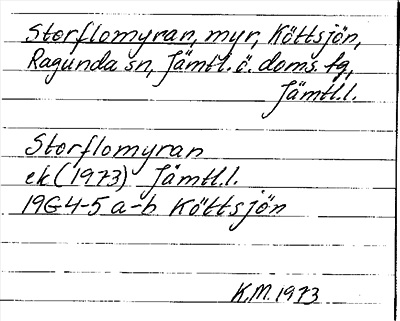 Storflomyran, myr, Köttsjön,
Ragunda sn, Jämtl. ö. doms. fg,
Jämtl.l.
Storflomyran
ek (1973) Jämtl.l.
19G4-5 a-b Köttsjön
K.M. 1973